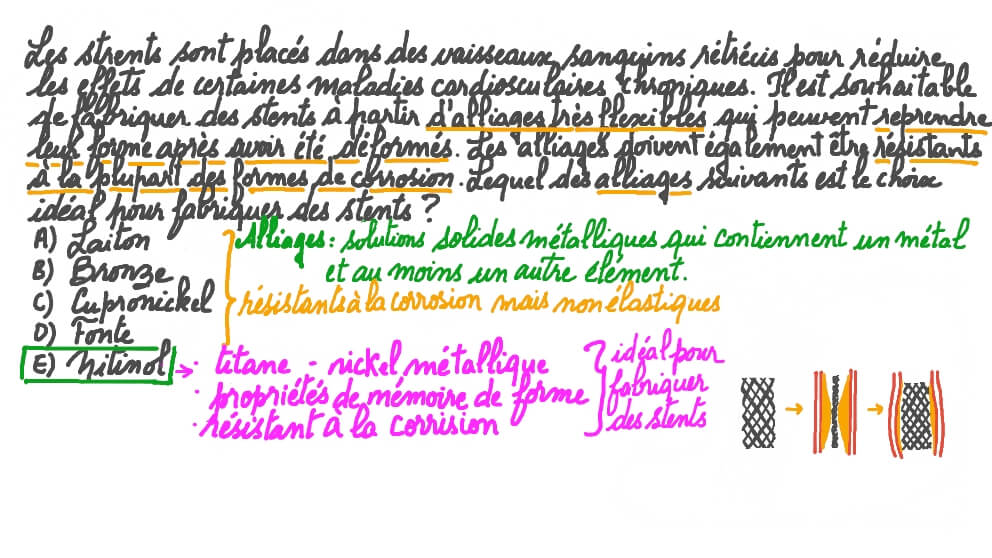 Les strents sont placés dans des vaisseaux sanguins rétrécis pour réduire
les effets de certaines maladies cardiosculaires chroniques. Il est souhaitable
de fabriquer des stents à partir d'alliages très flexibles qui peuvent reprendre
leur forme après avoir été déformés. Les alliages doivent également être résistants
à la plupart des formes de corrosion. Lequel des alliages suivants est le choix
idéal pour fabriquer des stents ?
A) Laiton
B) Bronze
C) Cupronickel
D) Fonte
E) Nitinol
Alliages : solutions solides métalliques qui contiennent un métal
et au moins un autre élément.
résistants à la corrosion mais non élastiques
→ • titane - nickel métallique
• propriétés de mémoire de forme
• résistant à la corrision
idéal pour
fabriquer
des stents